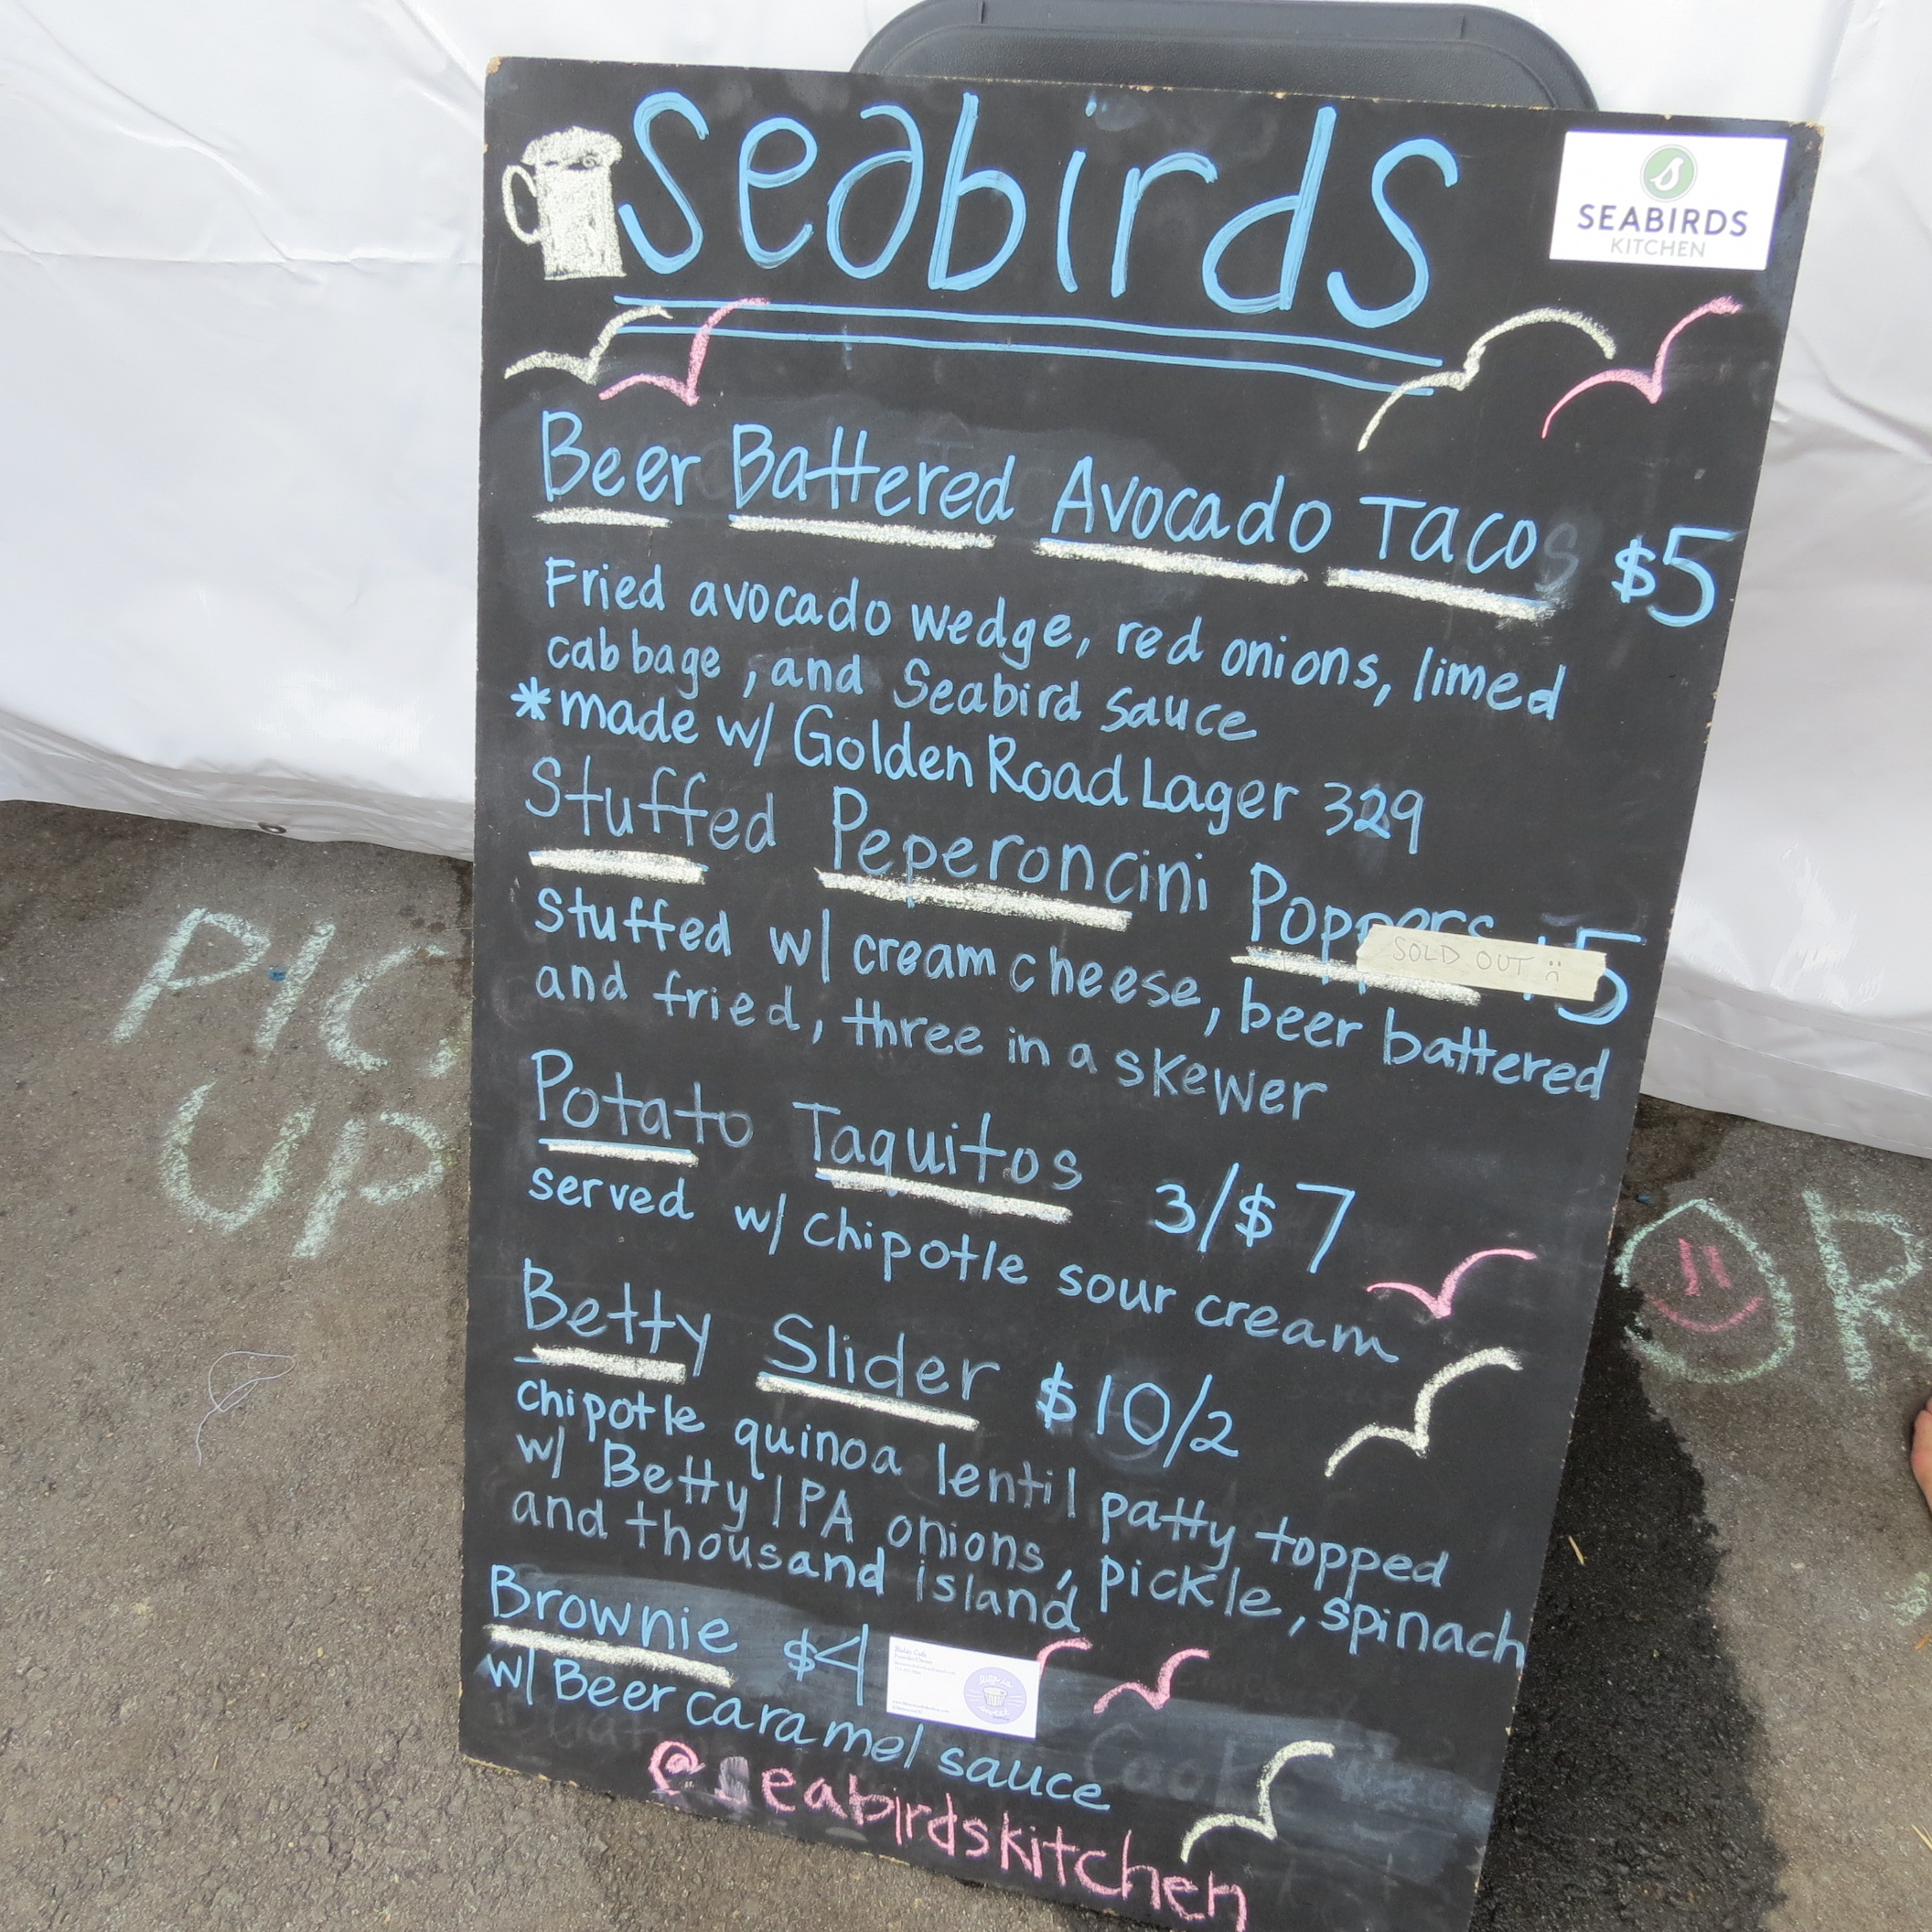 seabirds
SEABIRDS
KITCHEN
Beer Battered Avocado Taco $5
Fried avocado wedge, red onions, limed
cabbage, and Seabird sauce
*made w/ Golden Road Lager 329
Stuffed Peperoncini Poppers 5
SOLD OUT :(
Stuffed w/ cream cheese, beer battered
and fried, three in a skewer
Potato Taquitos 3/$7
served w/ chipotle sour cream
Betty Slider $10/2
chipotle quinoa lentil patty topped
w/ Betty IPA onions, pickle, spinach
and thousand island
Brownie $4
w/ Beer caramel sauce
@seabirdskitchen
PIC
UP
OR